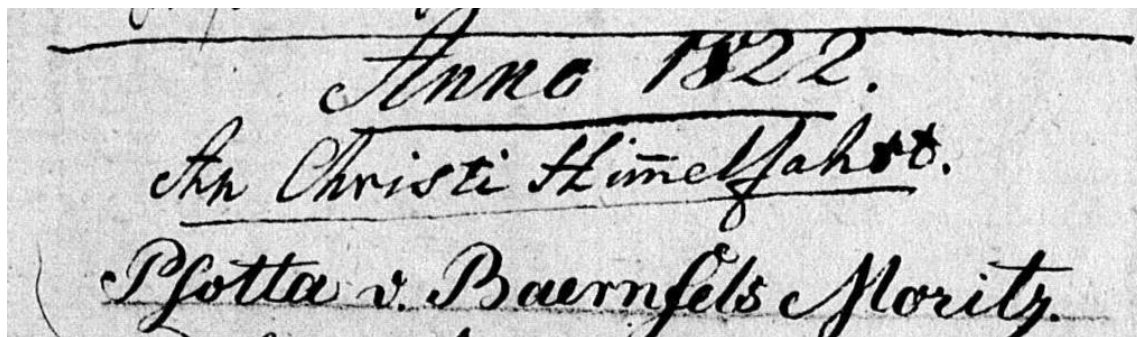 Anno 1822.
An Christi Him̅elfahrt.
Psotta v. Baernfels Moritz.